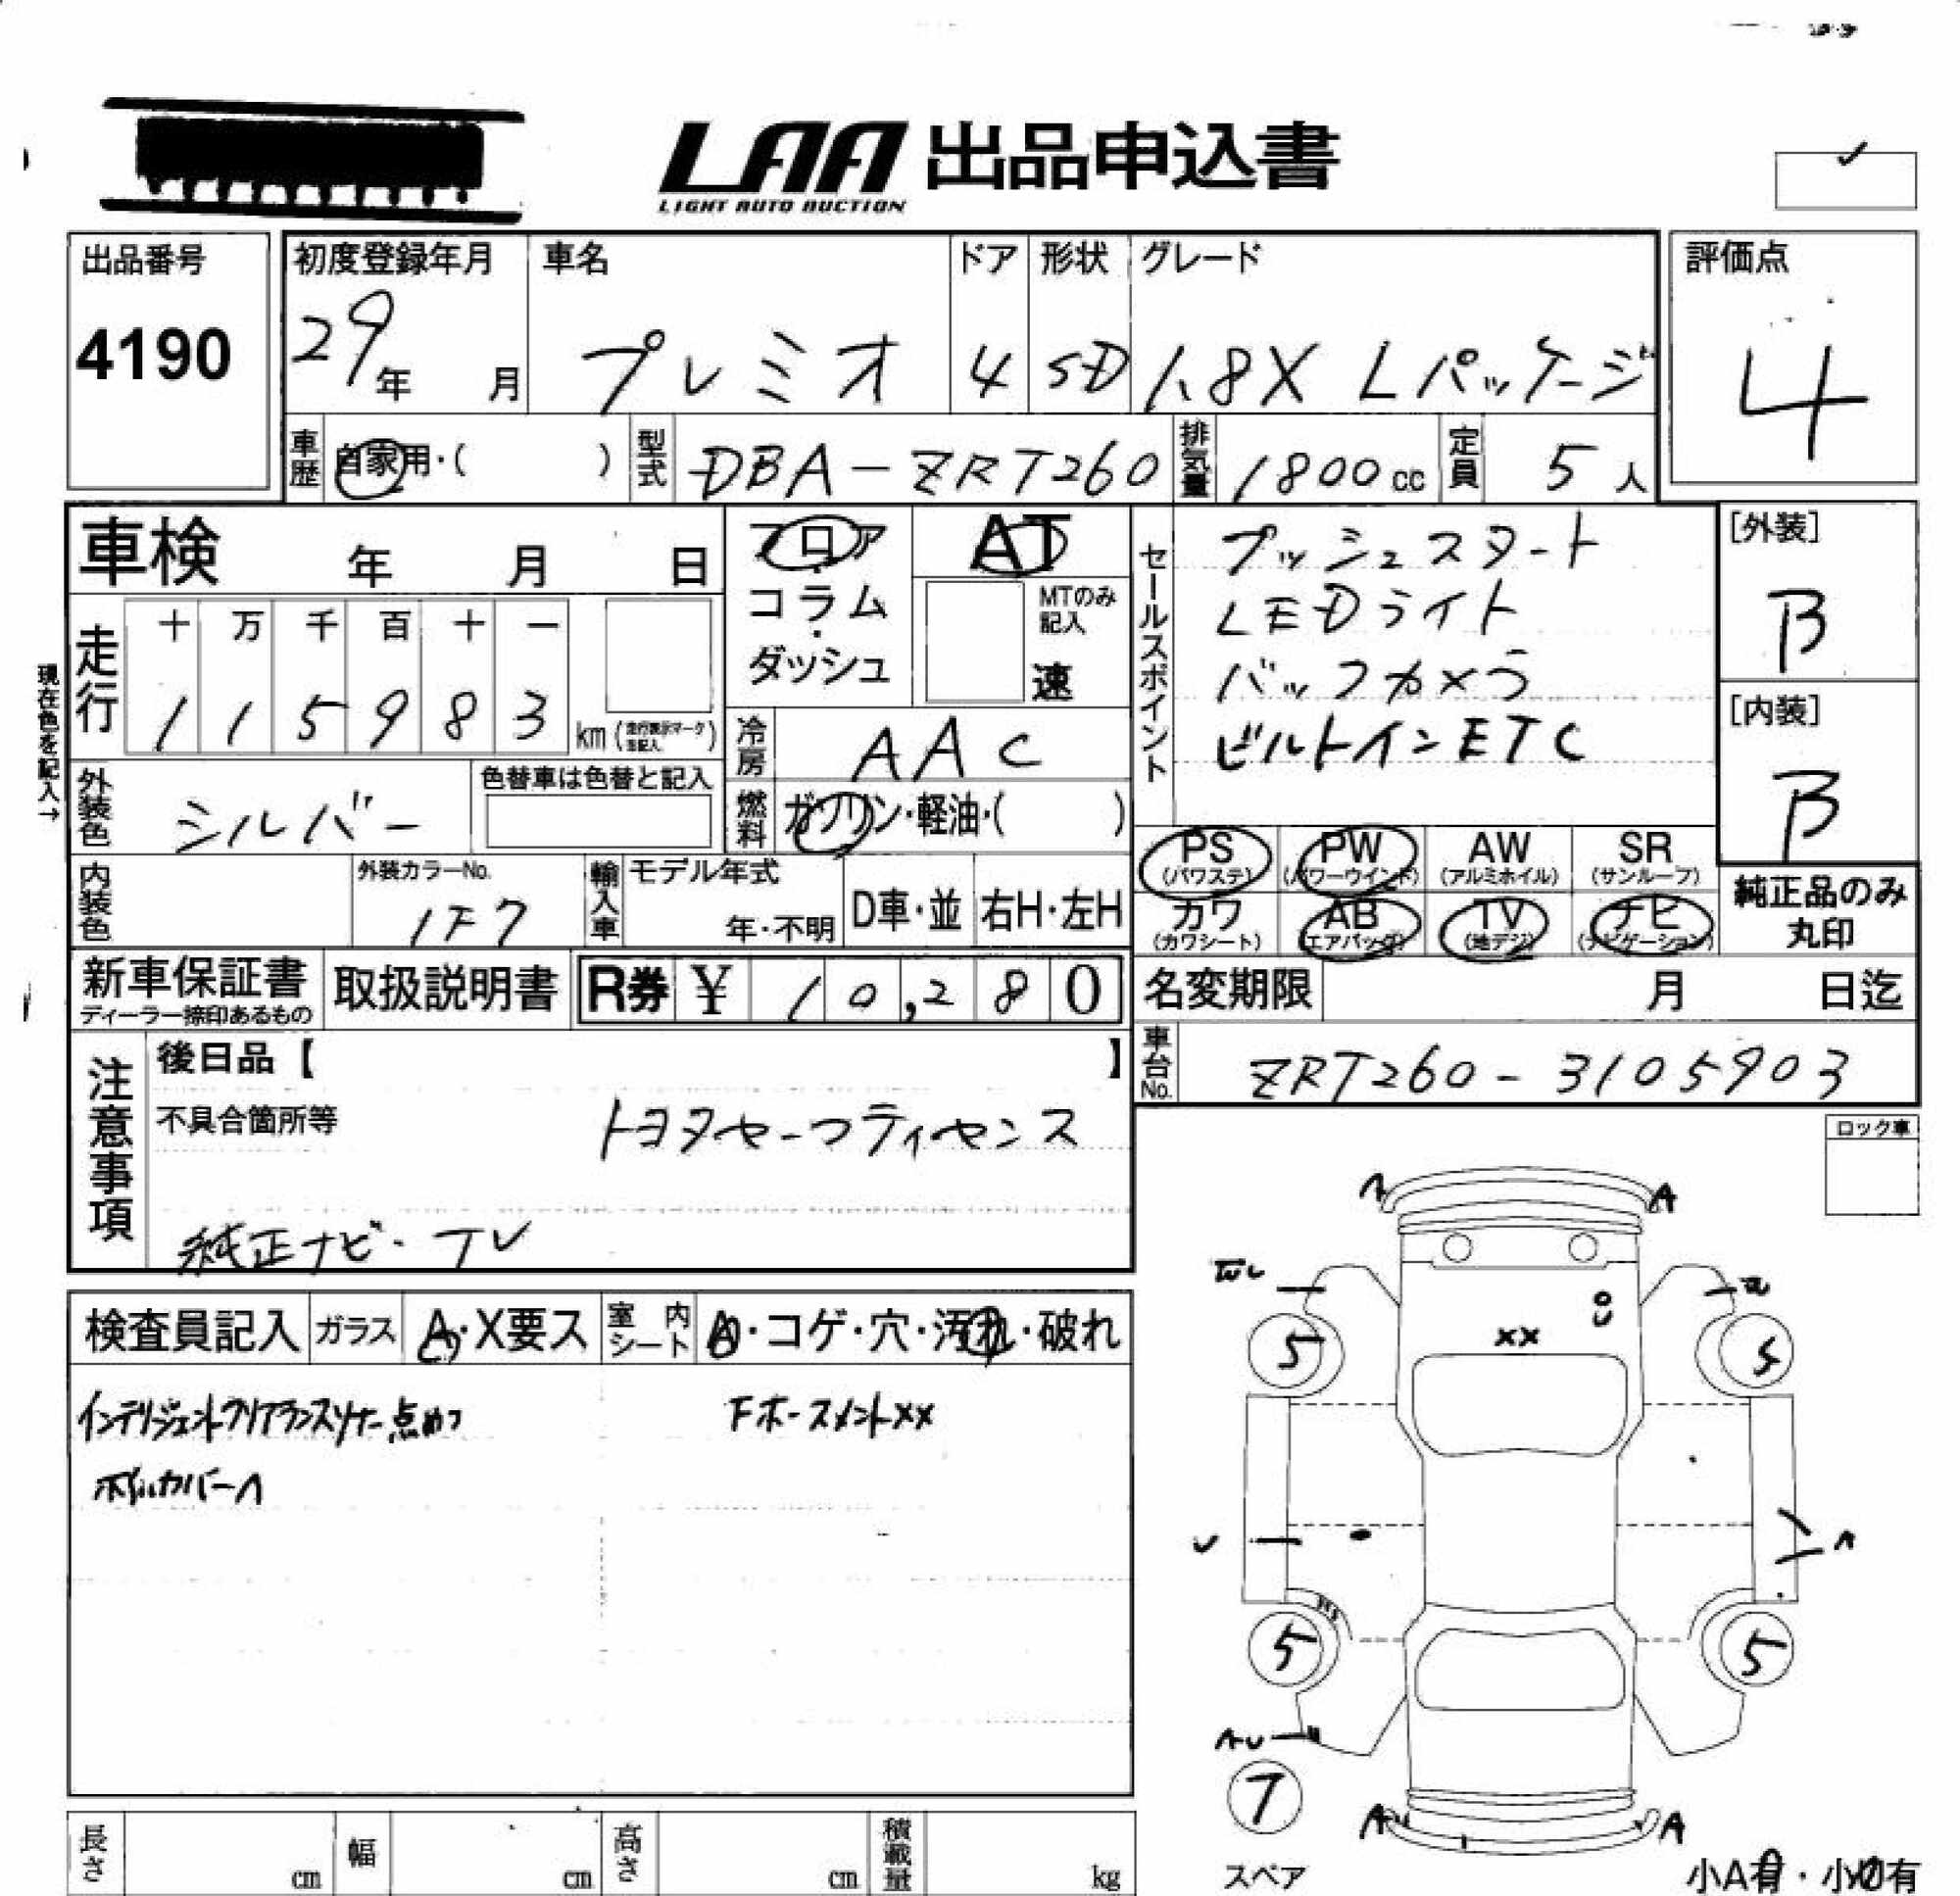 LAA 出品申込書
LIGHT AUTO AUCTION
出品番号
4190
初度登録年月
29年 月
車名
プレミオ
ドア
4
形状
SD
グレード
1.8X Lパッケージ
評価点
4
車歴 自家用・( )
型式 DBA-ZRT260
排気量 1800cc
定員 5人
車検 年 月 日
フロア・コラム・ダッシュ
AT
MTのみ記入
速
セールスポイント
プッシュスタート
LEDライト
バックカメラ
ビルトインETC
[外装]
B
[内装]
B
現在色を記入→
走行
十 万 千 百 十 一
1 1 5 9 8 3
km
冷房 AAC
外装色 シルバー
色替車は色替と記入
燃料 ガソリン・軽油・( )
PS PW AW SR
(パワステ) (パワーウインド) (アルミホイル) (サンルーフ)
カワ AB TV ナビ
(カワシート) (エアバッグ) (地デジ) (ナビゲーション)
純正品のみ
丸印
内装色
外装カラーNo.
1F7
輸入車
モデル年式
年・不明
D車・並
右H・左H
新車保証書
ディーラー捺印あるもの
取扱説明書
R券 ¥ 10,280
名変期限 月 日迄
注意事項
後日品【 】
不具合箇所等
トヨタセーフティセンス
純正ナビ・TV
車台No. ZRT260-3105903
ロック車
検査員記入
ガラス A・X要ス
室内シート
・コゲ・穴・汚れ・破れ
インテリジェントクリアランスソナー点めつ
Fホースメント××
ホイルカバーA
A A
××
5 5
U A
5 5
AU
7
スペア
A A
小A有・小U有
長さ cm
幅 cm
高さ cm
積載量 kg